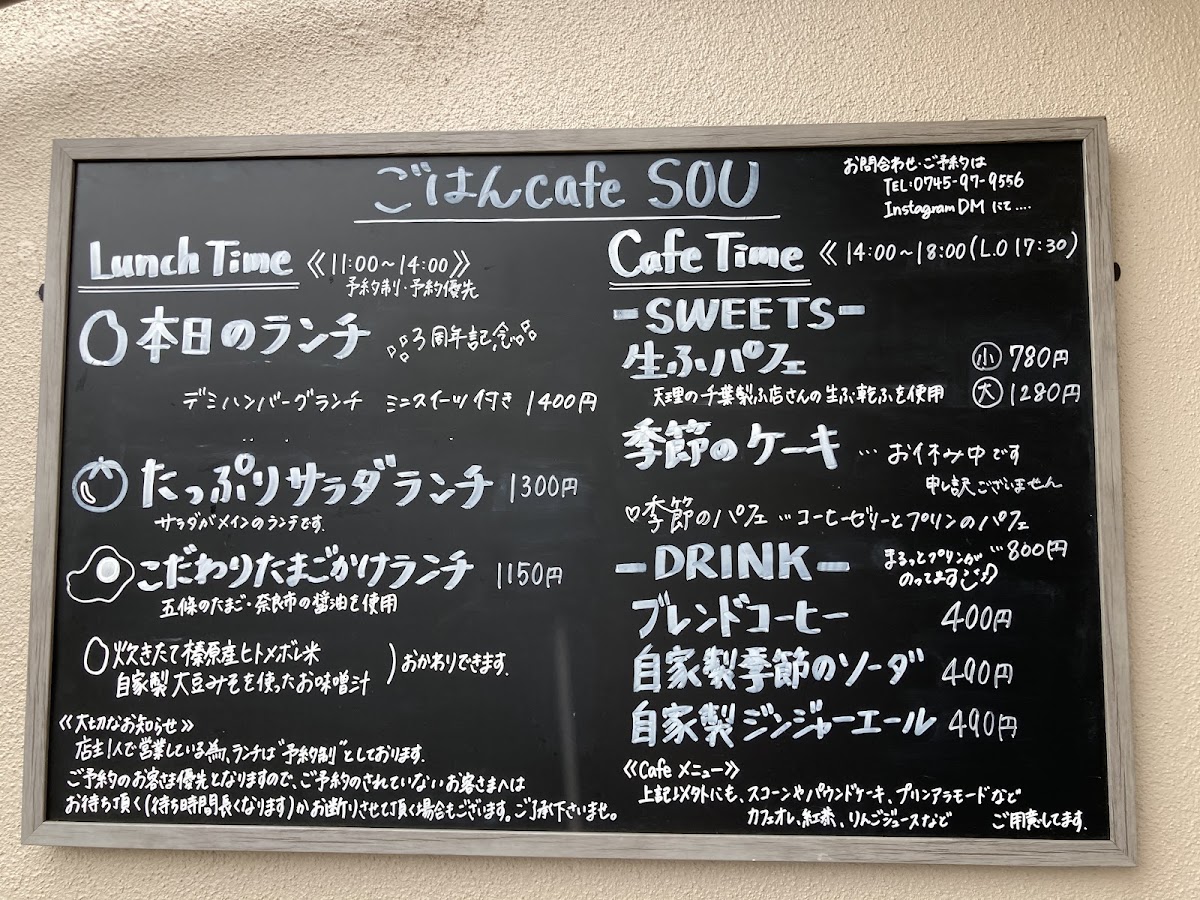 ごはんcafe SOU
お問合わせ・ご予約は
TEL・0745-97-9556
Instagram DM にて....
Lunch Time 《11:00～14:00》
予約制・予約優先
本日のランチ 3周年記念
デミハンバーグランチ ミニスイーツ付き 1400円
たっぷりサラダランチ 1300円
サラダがメインのランチです。
こだわりたまごかけランチ 1150円
五條のたまご・奈良市の醤油を使用
炊きたて榛原産ヒトメボレ米
自家製大豆みそを使ったお味噌汁
)おかわりできます。
《大切なお知らせ》
店主1人で営業している為、ランチは"予約制"としております。
ご予約のお客さま優先となりますので、ご予約のされていないお客さまへは
お待ち頂く(待ち時間長くなります)かお断りさせて頂く場合もございます。ご了承下さいませ。
Cafe Time 《 14:00～18:00(L.O 17:30)
-SWEETS-
生ふパフェ ㊙小 780円
天理の千葉製ふ店さんの生ふ・乾ふを使用 大 1280円
季節のケーキ … お休み中です
申し訳ございません
♡季節のパフェ …コーヒーゼリーとプリンのパフェ
…800円
まるっとプリンが
のってます
-DRINK-
ブレンドコーヒー 400円
自家製季節のソーダ 490円
自家製ジンジャーエール 490円
《Cafe メニュー》
上記以外にも、スコーンやパウンドケーキ、プリンアラモードなど
カフェオレ、紅茶、りんごジュースなど ご用意してます。